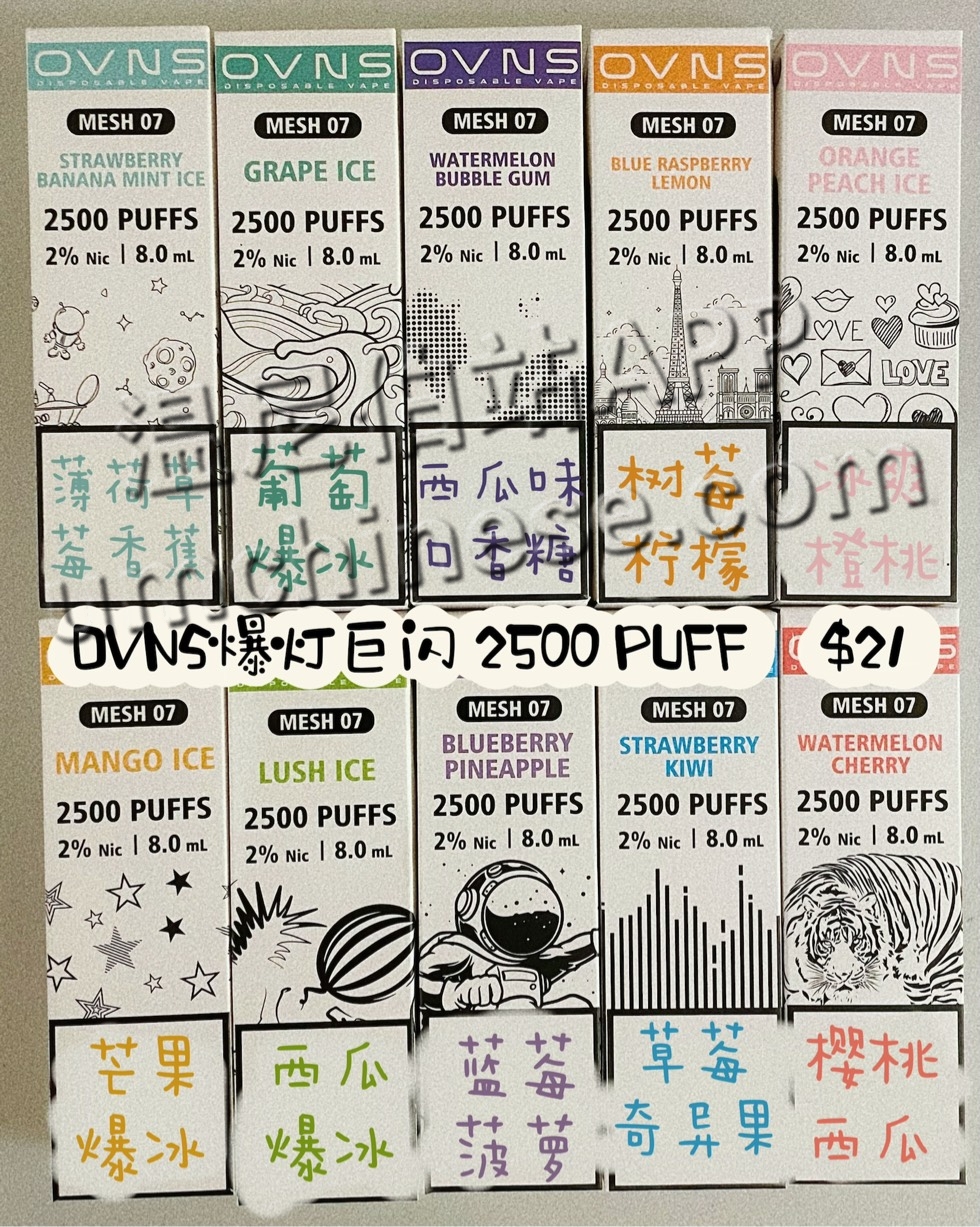 OVNS
DISPOSABLE VAPE
MESH 07
STRAWBERRY
BANANA MINT ICE
2500 PUFFS
2% Nic | 8.0 mL
薄荷草
莓香蕉
OVNS
DISPOSABLE VAPE
MESH 07
GRAPE ICE
2500 PUFFS
2% Nic | 8.0 mL
葡萄
爆冰
OVNS
DISPOSABLE VAPE
MESH 07
WATERMELON
BUBBLE GUM
2500 PUFFS
2% Nic | 8.0 mL
西瓜味
口香糖
OVNS
DISPOSABLE VAPE
MESH 07
BLUE RASPBERRY
LEMON
2500 PUFFS
2% Nic | 8.0 mL
树莓
柠檬
OVNS
DISPOSABLE VAPE
MESH 07
ORANGE
PEACH ICE
2500 PUFFS
2% Nic | 8.0 mL
LOVE
LOVE
冰爽
橙桃
温尼伯站APP
umchinese.com
OVNS爆灯巨闪 2500 PUFF $21
MESH 07
MANGO ICE
2500 PUFFS
2% Nic | 8.0 mL
芒果
爆冰
MESH 07
LUSH ICE
2500 PUFFS
2% Nic | 8.0 mL
西瓜
爆冰
MESH 07
BLUEBERRY
PINEAPPLE
2500 PUFFS
2% Nic | 8.0 mL
蓝莓
菠萝
MESH 07
STRAWBERRY
KIWI
2500 PUFFS
2% Nic | 8.0 mL
草莓
奇异果
MESH 07
WATERMELON
CHERRY
2500 PUFFS
2% Nic | 8.0 mL
樱桃
西瓜